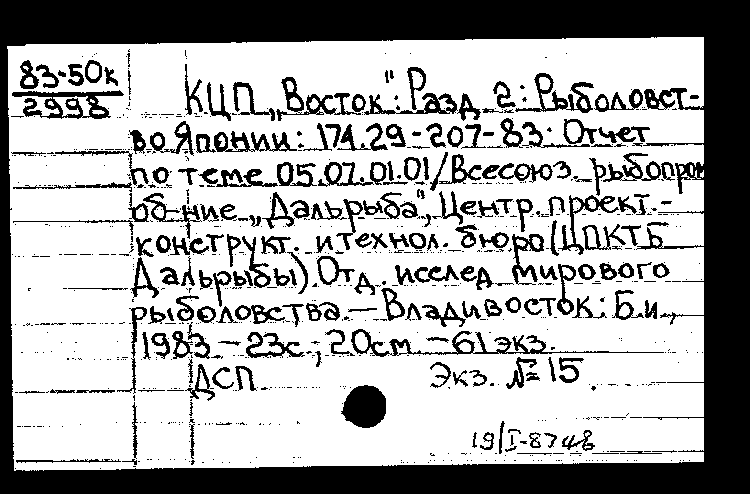 83-50к
2998
КЦП „Восток": Разд. 2: Рыболовст-
во Японии: 174.29-207-83: Отчет
по теме 05.07.01.01/Всесоюз. рыбопром
об-ние „Дальрыба", Центр. проект.-
конструкт. и технол. бюро (ЦПКТБ
Дальрыбы). Отд. исслед. мирового
рыболовства. — Владивосток: Б.и.,
1983 — 23с.; 20см. — 61 экз.
ДСП Экз. № 15.
19/I-8748